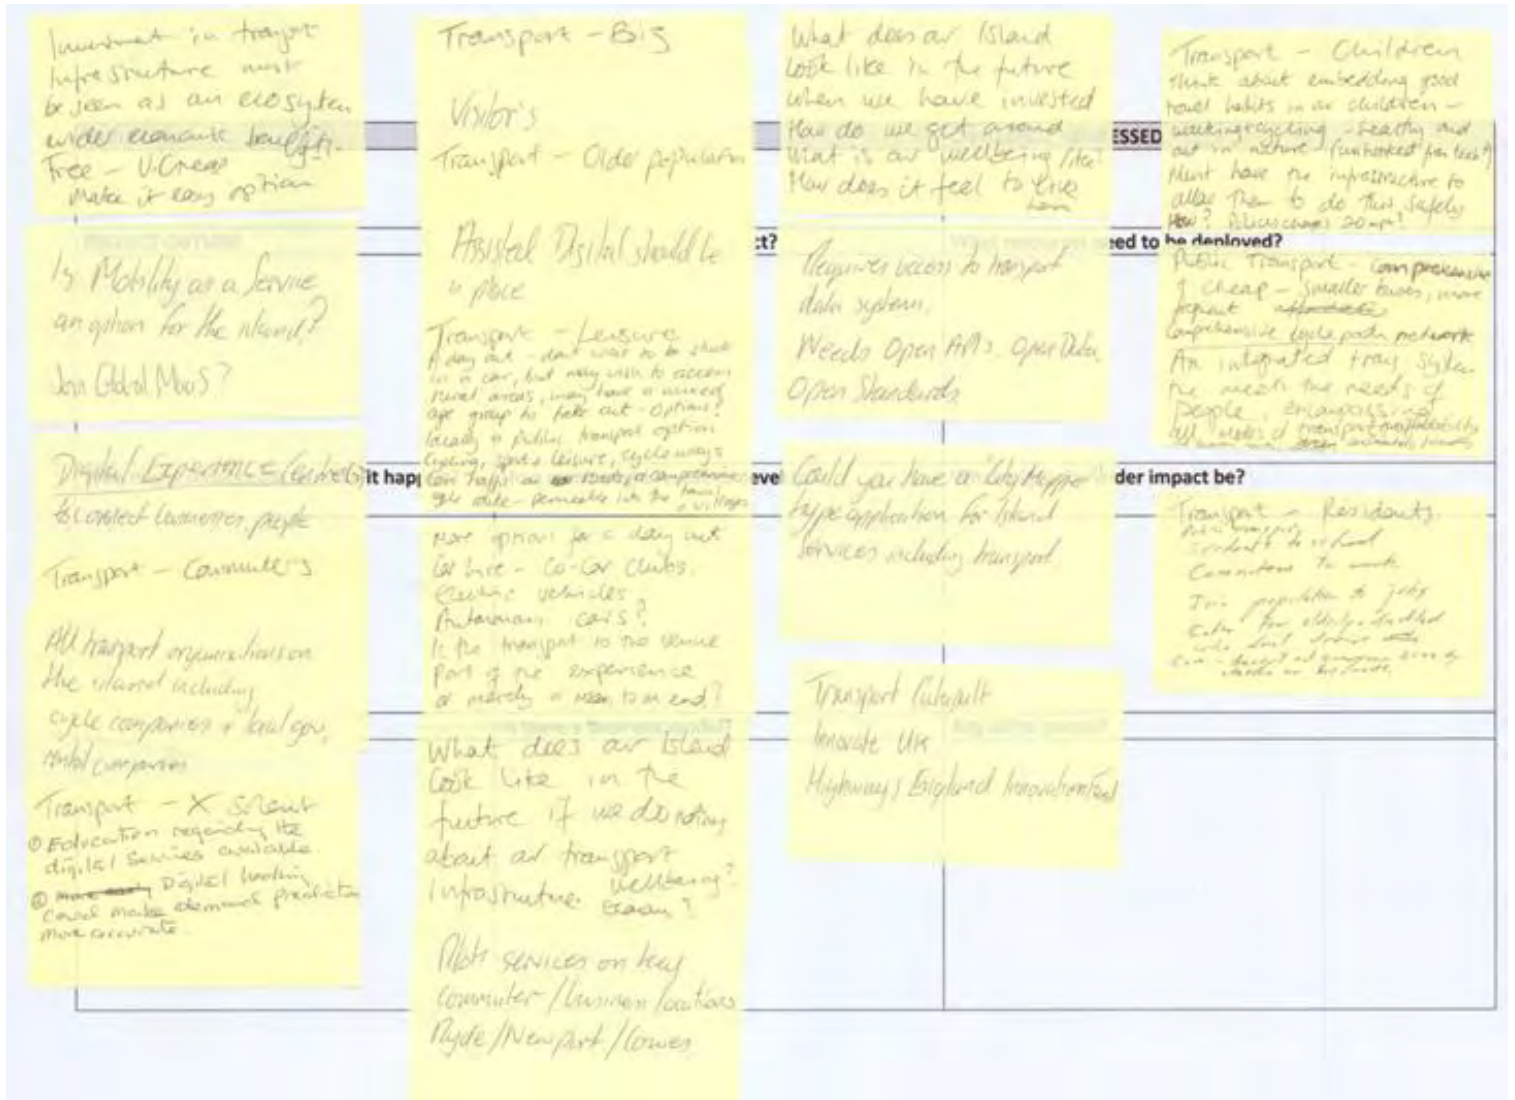 Investment in transport
infrastructure must
be seen as an ecosystem
wider economic benefits.
Free - U-Cneas
Make it easy option
Is Mobility as a Service
an option for the island?
Join Global MaaS?
Digital Experience Centre(s)
to connect commuters, people
Transport - Commuters
All transport organisations on
the island including
cycle companies + local gov,
rental companies
Transport - X Solent
① Education regarding the
digital services available.
② Digital booking
could make demand prediction
more accurate.
Transport - Big
Visitor's
Transport - Older population
Assisted Digital should be
in place
Transport - Leisure
A day out - don't want to be stuck
in a car, but may wish to access
rural areas, may have a mixed
age group to take out - options?
Usually a public transport option
Cycling, sport + leisure, cycle ways
cycle route - permeable into the towns + villages
More options for a day out
Car hire - Co-Car clubs.
Electric vehicles
Autonomous cars?
Is the transport to the venue
part of the experience
or merely a means to an end?
What does our Island
look like in the
future if we do nothing
about our transport
infrastructure. wellbeing?
Pilot services on key
commuter / business locations
Ryde / Newport / Cowes
What does our Island
look like in the future
when we have invested
How do we get around
What is our wellbeing like?
How does it feel to live
here
Requires access to transport
data systems.
Needs Open APIs, Open Data,
Open Standards
Could you have a 'City Mapper'
type application for Island
services including transport
Transport Catapult
Innovate UK
Highways England Innovation Fund
ESSED
Transport - Children
think about embedding good
travel habits in our children -
walking + cycling - healthy and
out in nature (unhooked from tech?)
Must have the infrastructure to
allow them to do this safely
How? Policy changes 20mph?
ct?
eed to be deployed?
Public Transport - comprehensive
& cheap - smaller buses, more
frequent
Comprehensive cycle path network
An integrated trans system
the meets the needs of
people, encompassing
all modes of transport
it hap
eve
der impact be?
Transport - Residents
Public transport
Students to school
Commuters to work
population to jobs
Cater for elderly + disabled
who don't drive